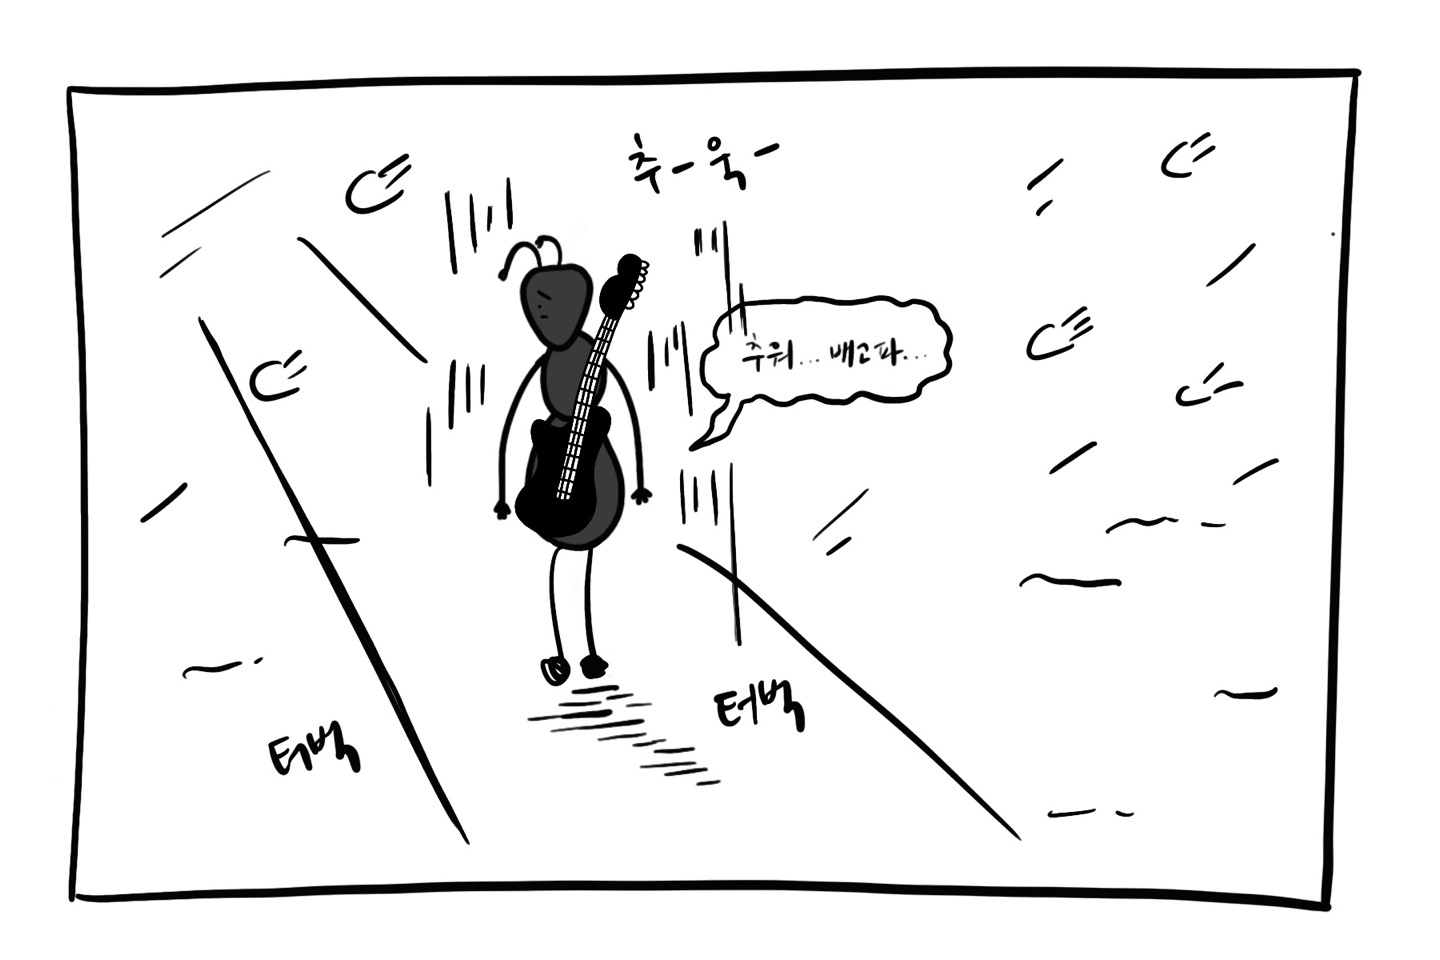 추-욱-
추워... 배고파...
터벅
터벅